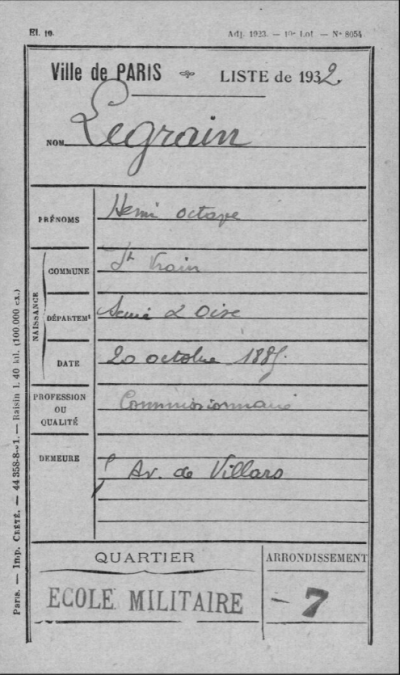 El. 10.
Adj. 1923. — 10e Lot. — No 8054
Ville de PARIS LISTE de 1932
NOM Legrain
PRÉNOMS Henri Octave
NAISSANCE
COMMUNE St Vrain
DÉPARTEMt Seine & Oise
DATE 20 octobre 1885.
PROFESSION
OU
QUALITÉ
Commissionnaire
DEMEURE
Av. de Villars
QUARTIER
ARRONDISSEMENT
ECOLE MILITAIRE
— 7
Paris. — Imp. CRÉTÉ. — 44 358-8-1. — Raisin 1. 40 kil. (100.000 ex.)